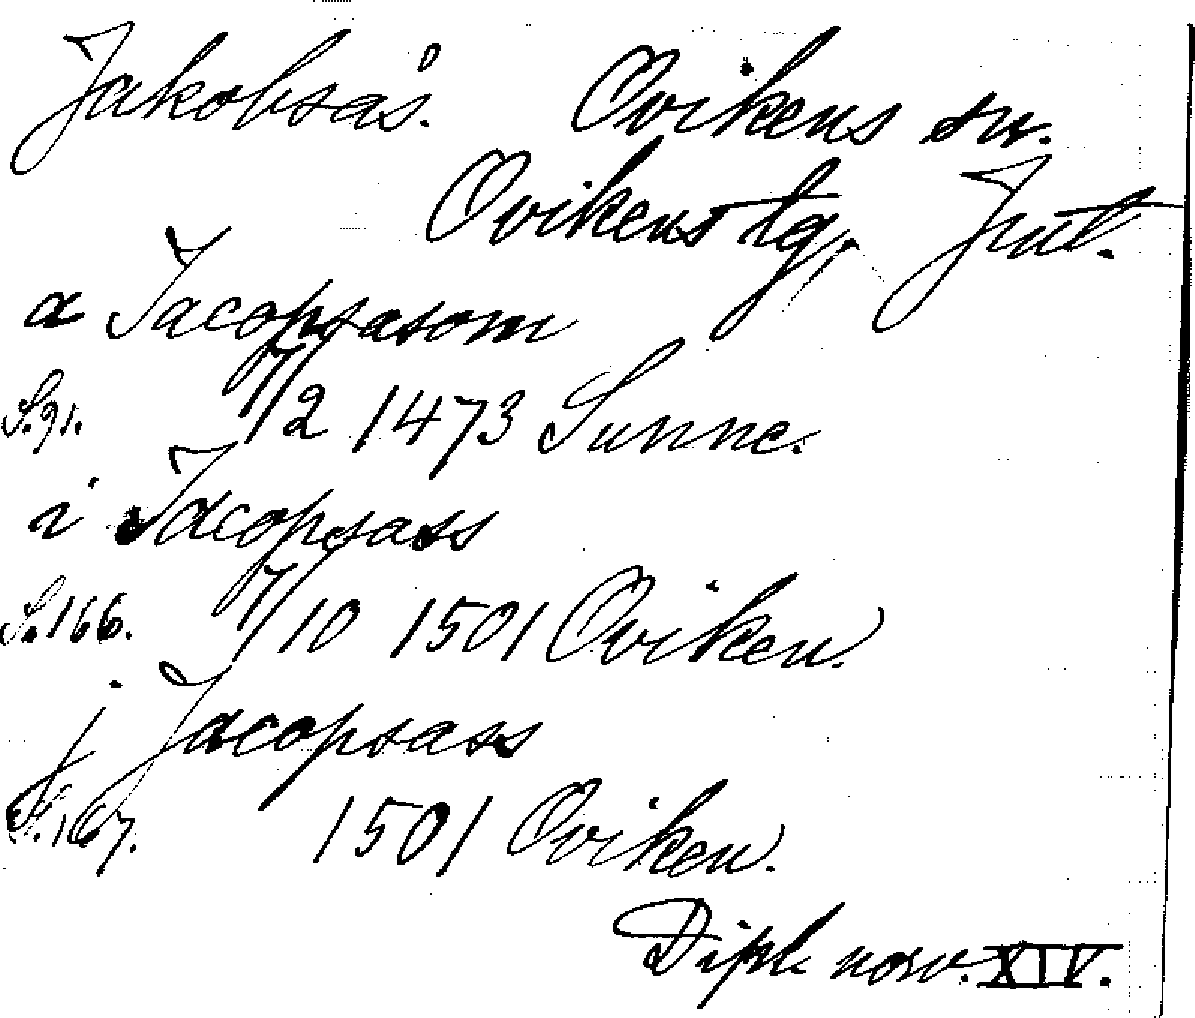 Jakobsås. Ovikens sn.
Ovikens tg, Jmt.
a Jacopsasom
S.91. 7/2 1473 Sunne.
i Jacopsass
S.166. 7/10 1501 Oviken.
j Jacopsass
S.167. 1501 Oviken.
Dipl. norv. XIV.